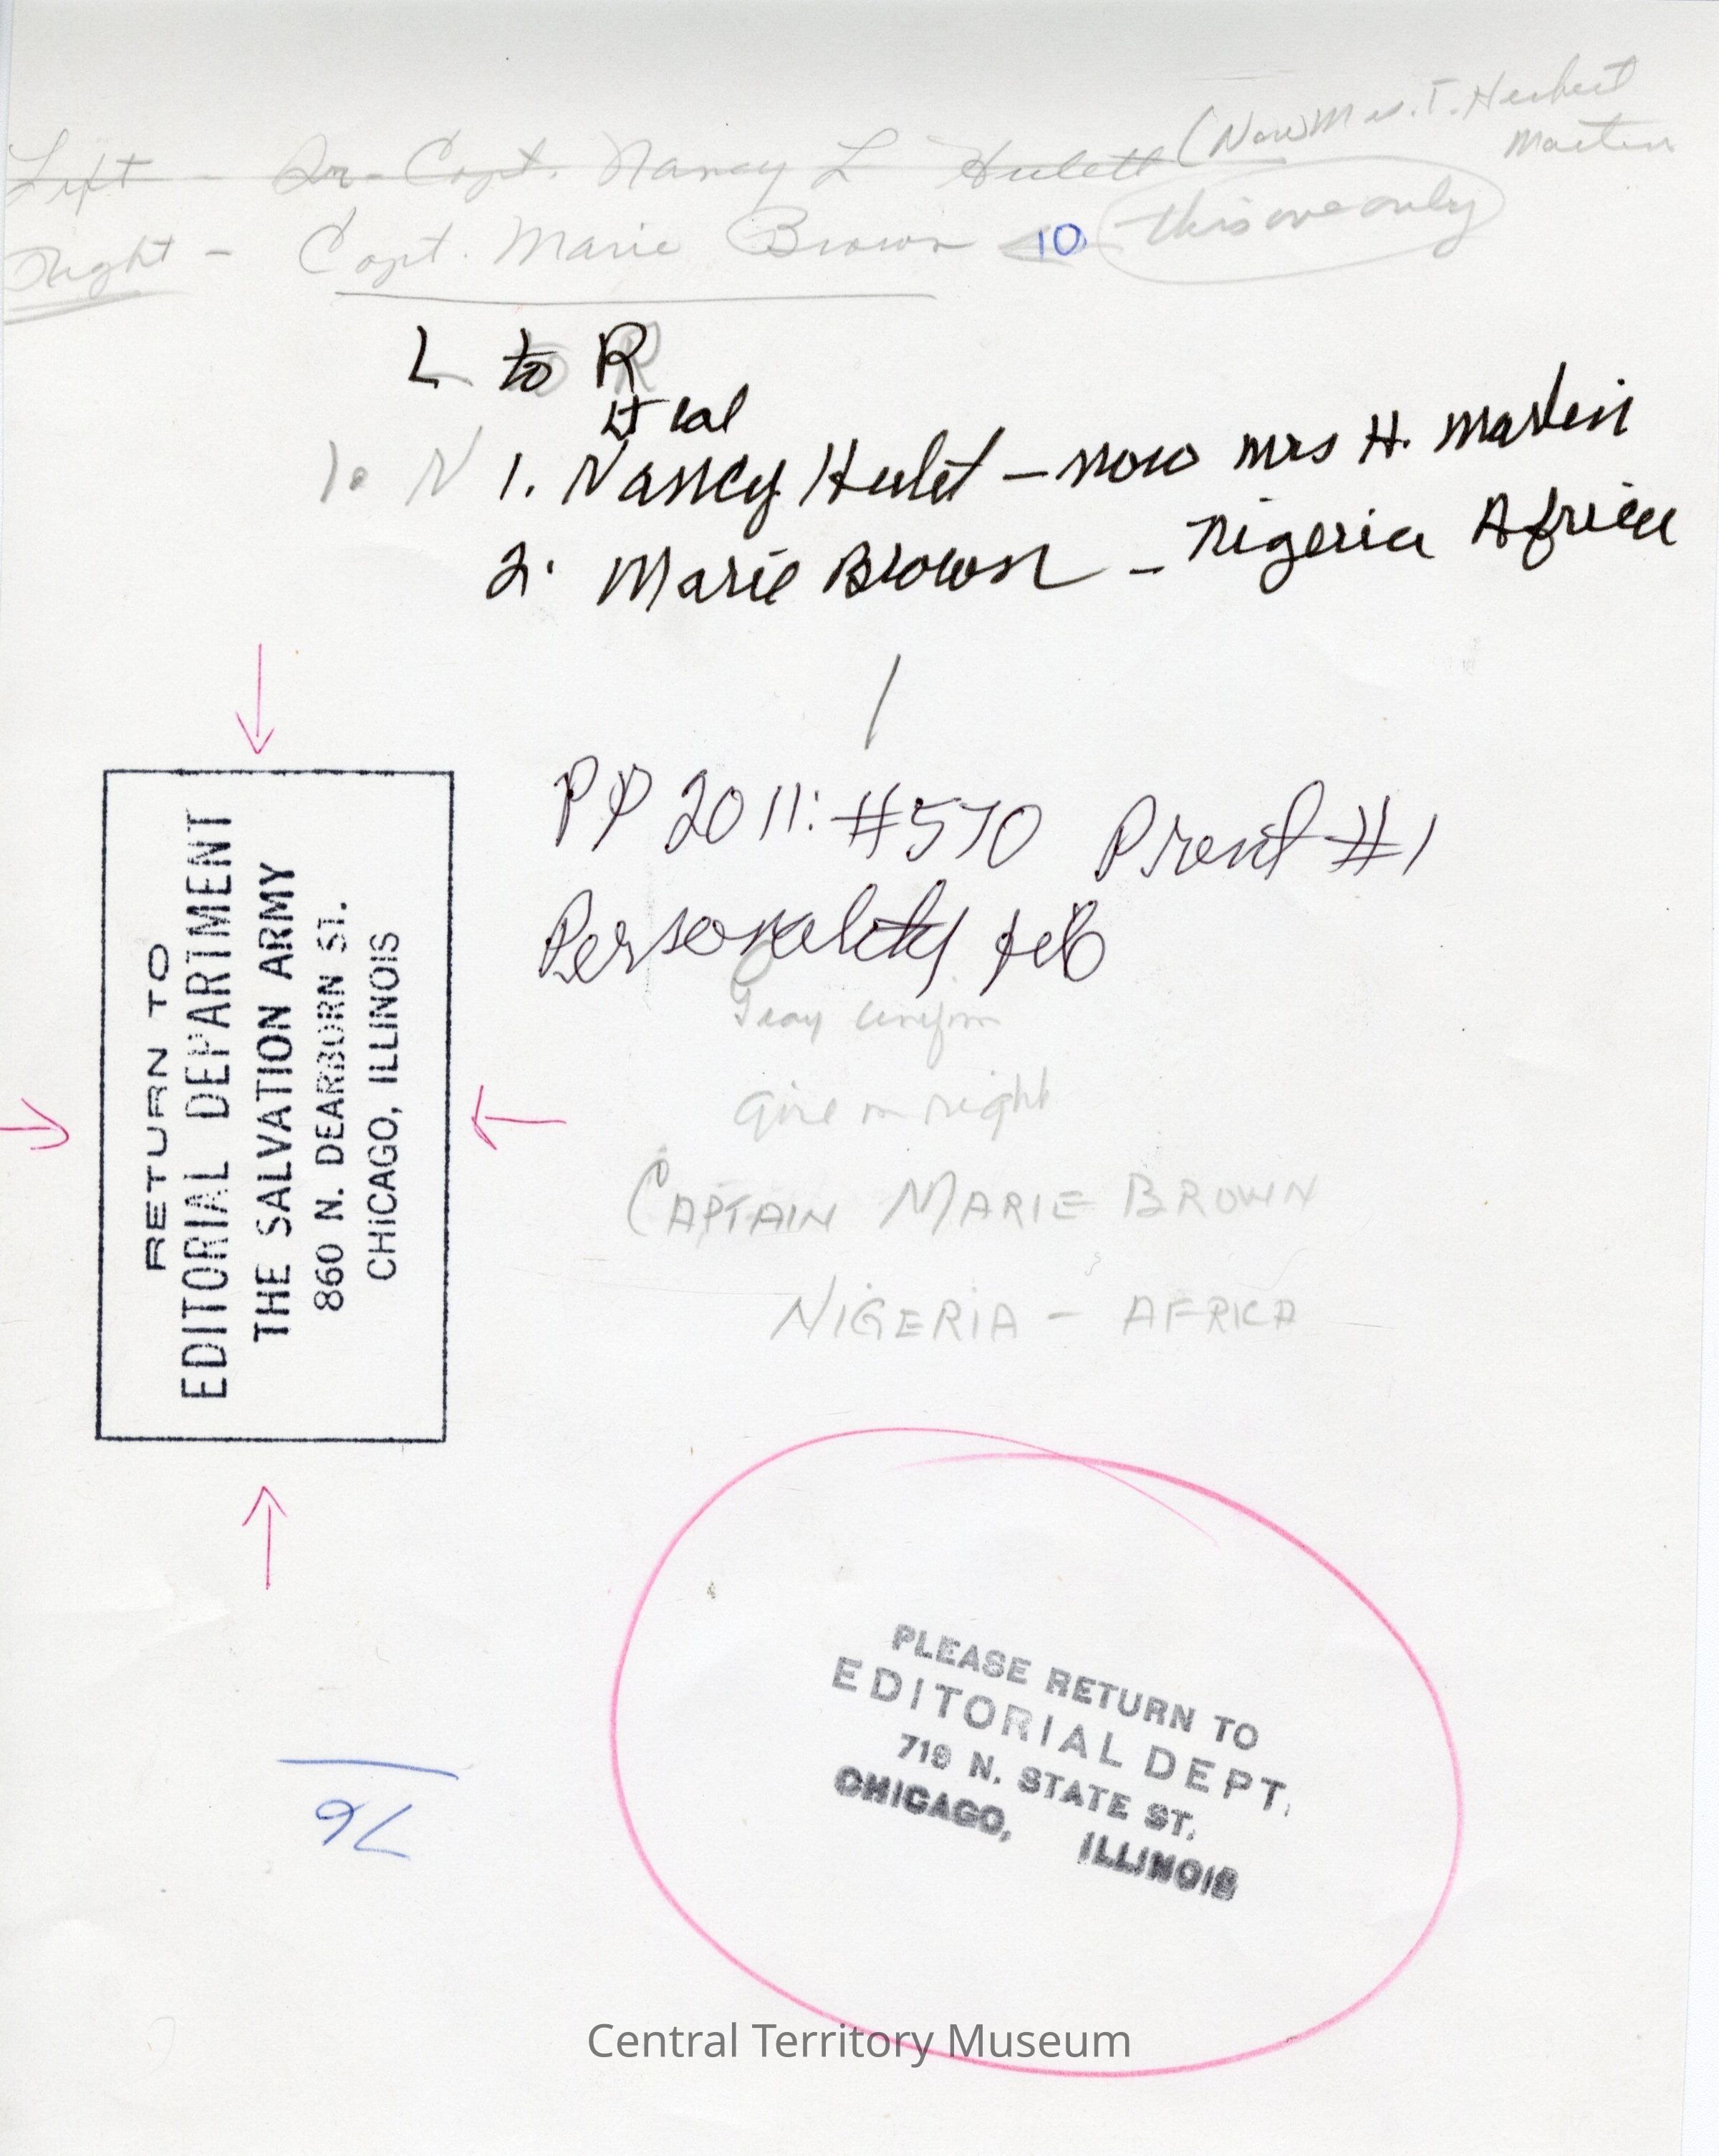 Left - Sr-Capt. Nancy L Hulett (Now Mrs. T. Herbert
Martin
Right - Capt. Marie Brown 10 this one only
L to R
Lt Col
1. N 1. Nancy Hulet - now mrs H. Martin
2. Marie Brown - Nigeria Africa
PP 2011: #570 Print #1
Personality
Gray uniform
Girl on right
CAPTAIN MARIE BROWN
NIGERIA - AFRICA
RETURN TO
EDITORIAL DEPARTMENT
THE SALVATION ARMY
860 N. DEARBORN ST.
CHICAGO, ILLINOIS
PLEASE RETURN TO
EDITORIAL DEPT.
719 N. STATE ST.
CHICAGO, ILLINOIS
76
Central Territory Museum